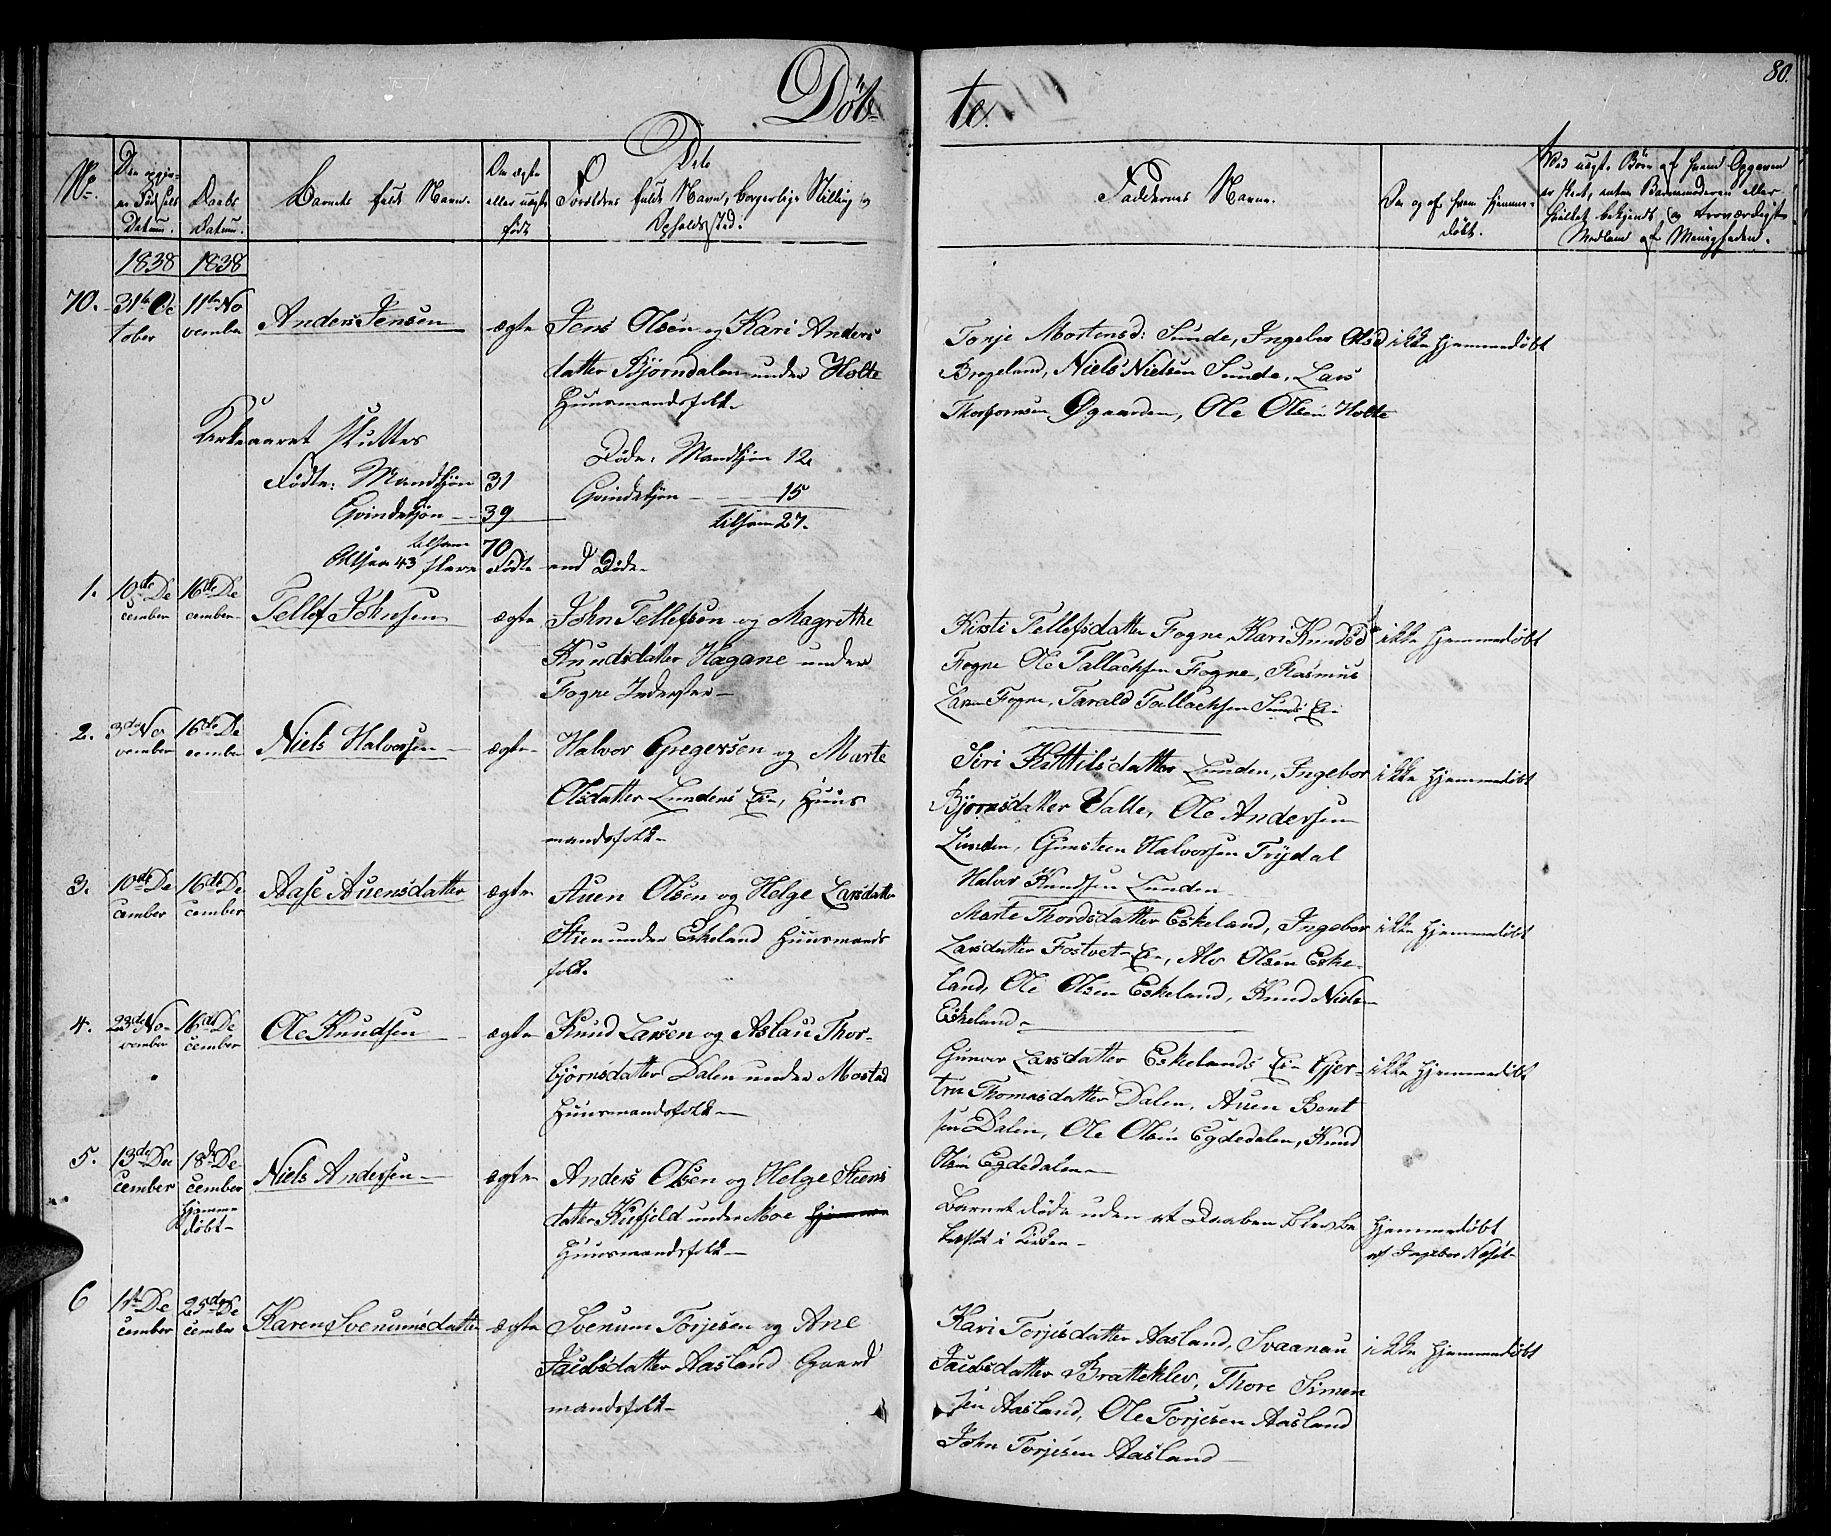 Döb-
te.
80.
No.
Datum.
Daabs
Datum.
Barnets fulde Navn.
Om ægte
eller uægte
født
Forældres fulde Navn, borgerlige Stilling og
Opholdssted.
Faddernes Navne.
Om og af hvem hjemme-
døbt.
Ved uægt. Børn af hvem Opgaven
er skeet, enten Barnemoderen eller
hvilket bekjendt og troværdigt
Medlem af Menigheden.
1838
1838
70.
31te Oc
tober
11te No
vember
Anders Jensen
ægte
Jens Olsen og Kari Anders
datter Bjørndalen under Holte
Huusmandsfolk
Tonje Mortensd: Sunde, Ingebor Olsd
Nielsen Sunde, Lars
Øgaarden, Ole Olsen Holte
ikke hjemmedøbt
Kirkeaaret sluttes
Fødte: Mandkjøn 31
Qvindekjøn 39
tilsam 70
Altsaa 43 flere Fødte end Døde
Døde: Mandkjøn 12
Qvindekjøn 15
tilsam 27.
1.
10de De
cember
16de De
cember
Tellef Johnsen
ægte
John Tellefsen og Magrethe
Knudsdatter Hagane under
Fogne Inderster
Kirsti Tellefsdatter Fogne, Kari Knudsd
Fogne Ole Tallachsen Fogne, Rasmus
Larsen Fogne, Tarald Tallachsen Sunds Ei
ikke hjemmedøbt
2.
3de No
vember
16de De
cember
Niels Halvorsen
ægte
Halvor Gregersen og Marte
Olsdatter Lundens Ei, Huus
mandsfolk
Siri Kittilsdatter Lunden, Ingebor
Bjørnsdatter Valle, Ole Andersen
Lunden, Gunsteen Halvorsen Trydal
Halvor Knudsen Lunden
ikke hjemmedøbt
3.
10de De
cember
16de De
cember
Aase Auensdatter
ægte
Auen Olsen og Helge Larsdatter
Stien under Eskeland Huusmands
folk
Marte Thordsdatter Eskeland, Ingebor
Larsdatter Fostvet Ei, Alv Olsen Eske-
land, Ole Olsen Eskeland, Knud Niels
Eskeland
ikke hjemmedøbt
4.
23de No-
vember
16de De
cember
Ole Knudsen
ægte
Knud Larsen og Aslau Thor-
bjørnsdatter Dalen under Mostad
Huusmandsfolk
Gunvor Larsdatter Eskelands Ei Gjer-
tru Thomasdatter Dalen, Auen Bent
sen Dalen, Ole Olsen Egdedalen, Knud
Olsen Egdedalen
ikke hjemmedøbt
5.
13de De
cember
18de De
cember
hjemme
døbt
Niels Andersen
ægte
Anders Olsen og Helge Steens
datter under Moe
Huusmandsfolk
Barnet døde uden at Daaben blev be
kræftet i Kirken
hjemmedøbt
af Ingebor
6
1te De
cember
25de De
cember
Karen Svenumsdatter
ægte
Svenum Torjesen og Ane
Jacobsdatter Aasland Gaard
mandsfolk
Kari Torjesdatter Aasland, Svaanau
Jacobsdatter Bratteklev, Thore Simen
sen Aasland, Ole Torjesen Aasland
John Torjesen Aasland
ikke hjemmedøbt